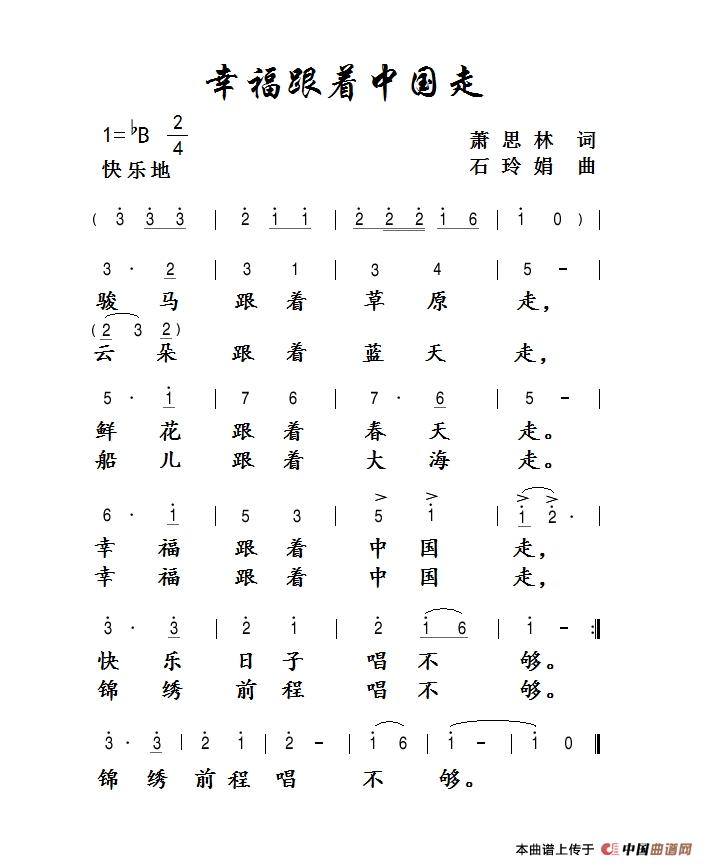 幸福跟着中国走
1=♭B 2/4
萧思林 词
快乐地
石玲娟 曲
( 3̇ 3̇ 3̇ | 2̇ 1̇ 1̇ | 2̇ 2̇ 2̇ 1̇ 6 | 1̇ 0 ) |
3 · 2 | 3 1 | 3 4 | 5 – |
骏马跟着草原走，
( 2 3 2 )
云朵跟着蓝天走，
5 · 1̇ | 7 6 | 7 · 6 | 5 – |
鲜花跟着春天走。
船儿跟着大海走。
6 · 1̇ | 5 3 | 5 1̇ | 1̇ 2̇ · |
幸福跟着中国走，
幸福跟着中国走，
3̇ · 3̇ | 2̇ 1̇ | 2̇ 1̇ 6 | 1̇ – :‖
快乐日子唱不够。
锦绣前程唱不够。
3̇ · 3̇ | 2̇ 1̇ | 2̇ – | 1̇ 6 | 1̇ – | 1̇ – | 1̇ 0 ‖
锦绣前程唱不够。
本曲谱上传于 中国曲谱网